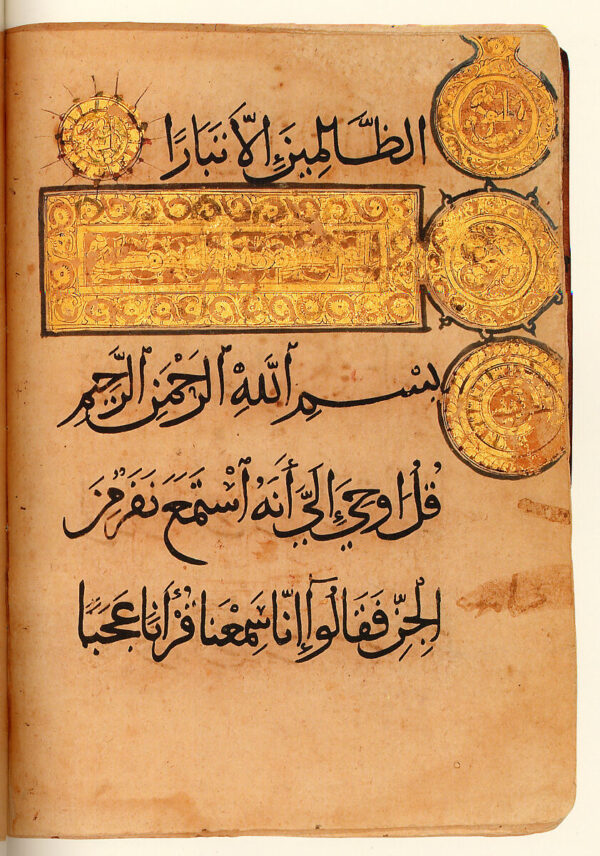 الظَّالِمِينَ إِلَّا تَبَارًا
بِسْمِ اللَّهِ الرَّحْمَٰنِ الرَّحِيمِ
قُلْ أُوحِيَ إِلَيَّ أَنَّهُ اسْتَمَعَ نَفَرٌ مِنَ
الْجِنِّ فَقَالُوا إِنَّا سَمِعْنَا قُرْآنًا عَجَبًا